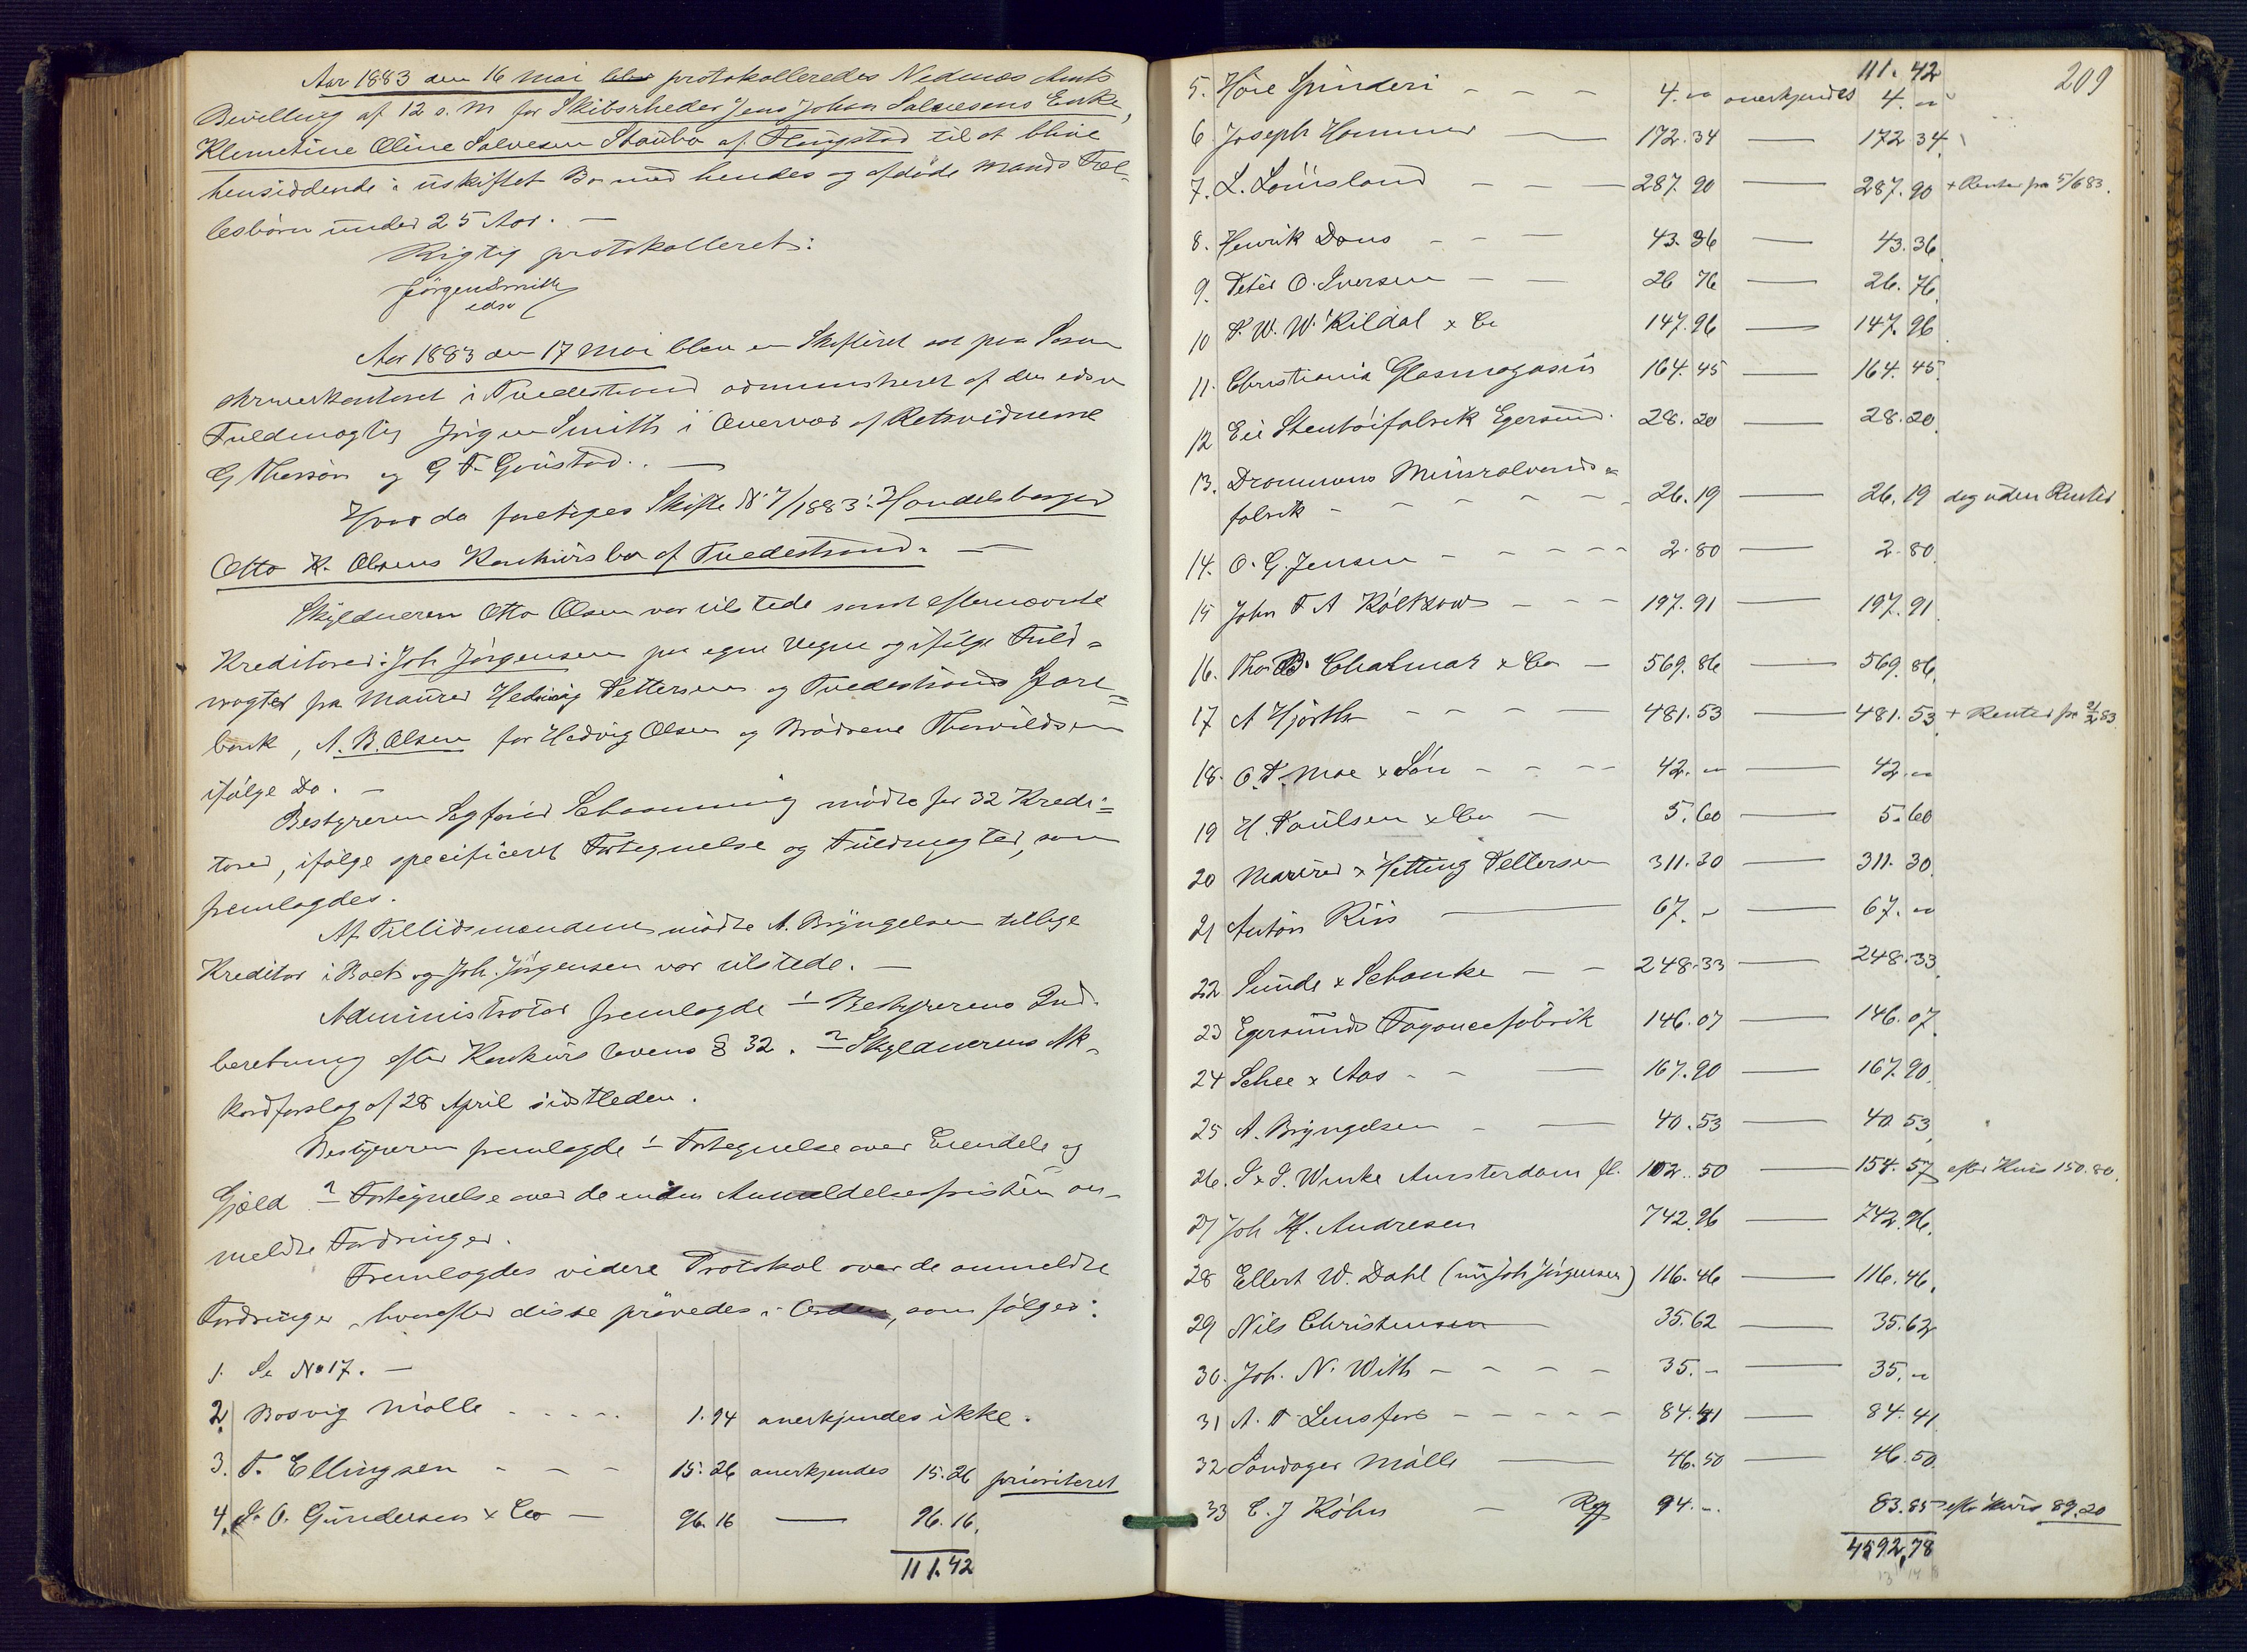 Aar 1883 den 16 Mai blev protokolleredes Nedenæs Amts
Bevilling af 12 s. M for Skibsrheder Jens Johan Salvesens Enke,
Klemetine Oline Salvesen Staubø af Flangstad til at blive
hensiddende i uskiftet Bo med hendes og afdøde Mands Fæl-
lesbørn under 25 Aar. —
Rigtig protokolleret:
Jørgen Smith
edsv
Aar 1883 den 17 Mai blev en Skifteret sat paa Soren
skriverkontoret i Tvedestrand administreret af den edsv
Fuldmægtig Jørgen Smith i Overvær af Retsvidnerne
G Thersøn og G F. Goustad. . —
Hvor da foretoges Skifte No 7/1883: Handelsborger
Otto K. Olsens Konkursbo af Tvedestrand. —
Skyldneren Otto Olsen var tilstede samt efternævnte
Kreditorer: Joh Jørgensen paa egne Vegne og ifølge Fuld=
magter fra Maurer Hedwig Pettersen og Tvedestrands Spare=
bank, A. B. Olsen for Hedvig Olsen og Brødrene Thorvildsen
ifølge Do. —
Bestyreren Sagfører Schanning mødte for 32 Kredi=
torer, ifølge specificeret Fortegnelse og Fuldmagter, som
fremlagdes.
Af Tillidsmændene mødte A. Bryngelsen tillige
Kreditor i Boet og Joh. Jørgensen var tilstede. —
Administrator fremlagde 1 Bestyrerens Ind-
beretning efter Konkurslovens § 32. 2 Skyldnerens Ak-
kordforslag af 28 April sidstleden.
Bestyreren fremlagde 1 Fortegnelse over Eiendele og
Gjæld 2 Fortegnelse over de inden Anmeldelsesfristen an-
meldte Fordringer.
Fremlagdes videre Protokol over de anmeldte
Fordringer, hvorefter disse prøvedes i Orden, som følger:
1. Se No 17. —
2. Bosvig Mølle - - - - 1.94 anerkjendes ikke.
3. T. Ellingsen - - - 15.26 anerkjendes 15.26 prioriteret
4. S. O. Gundersen & Co — 96.16 — 96.16.
111.42
209
111.42
5. Høie Spinderi - - - 4. " anerkjendes 4. "
6 Joseph Hammer — 172.34 — 172.34
7. L. Løvsland - - - 287.90 — 287.90 + Renter fra 5/6 83.
8. Henrik Dons - - - 43.36 — 43.36
9. Peter O. Iversen - - 26 76 — 26.76
10 P. W. W. Kildal & Co 147.96 — 147.96
11. Christiania Glasmagasin 164.45 — 164.45
12 Eie Stentøifabrik Egersund. 28.20 — 28.20
13. Drammens Mineralvands=
fabrik - - - - - 26.19 — 26.19 dog uden Renter
14. O. G. Jensen - - - - - 2.80 — 2.80
15 John F A Køltzow - - - 197.91 — 197.91
16. Tho. B. Chalmar & Co — 569.86 — 569.86
17 A Hjorth - - - - 481.53 — 481.53 + Renter fra 2/2 83
18. O. P. Moe & Søn - - - - 42. " — 42. "
19 H. Poulsen & Co — 5.60 — 5.60
20 Maurer & Hetting Pettersen 311.30 — 311.30
21 Anton Riis — 67. " — 67. "
22 Sunde & Schanke - - 248.33 — 248.33
23 Egersunds Fayancefabrik 146.07 — 146.07
24 Schee & Aas - - — 167.90 — 167.90
25 A. Bryngelsen - — 40.53 — 40 53
26. S & S. Winke Amsterdam fl. 102.50 — 154.57 efter Kurs 150.80.
27 Joh H. Andresen 742.96 — 742.96
28 Ellert W. Dahl (nu Joh Jørgensen) 116.46 — 116.46.
29 Nils Christensen — 35.62 — 35.62
30. Joh. N. With - - - - 35. " — 35. "
31 A. P Lensfors - - - - - 84.41 — 84.41
32 Sandager Mølle — 46.50 — 46.50
33 C. J Köhn - 94. - 83.85 efter Kurs 89.20
4592,78